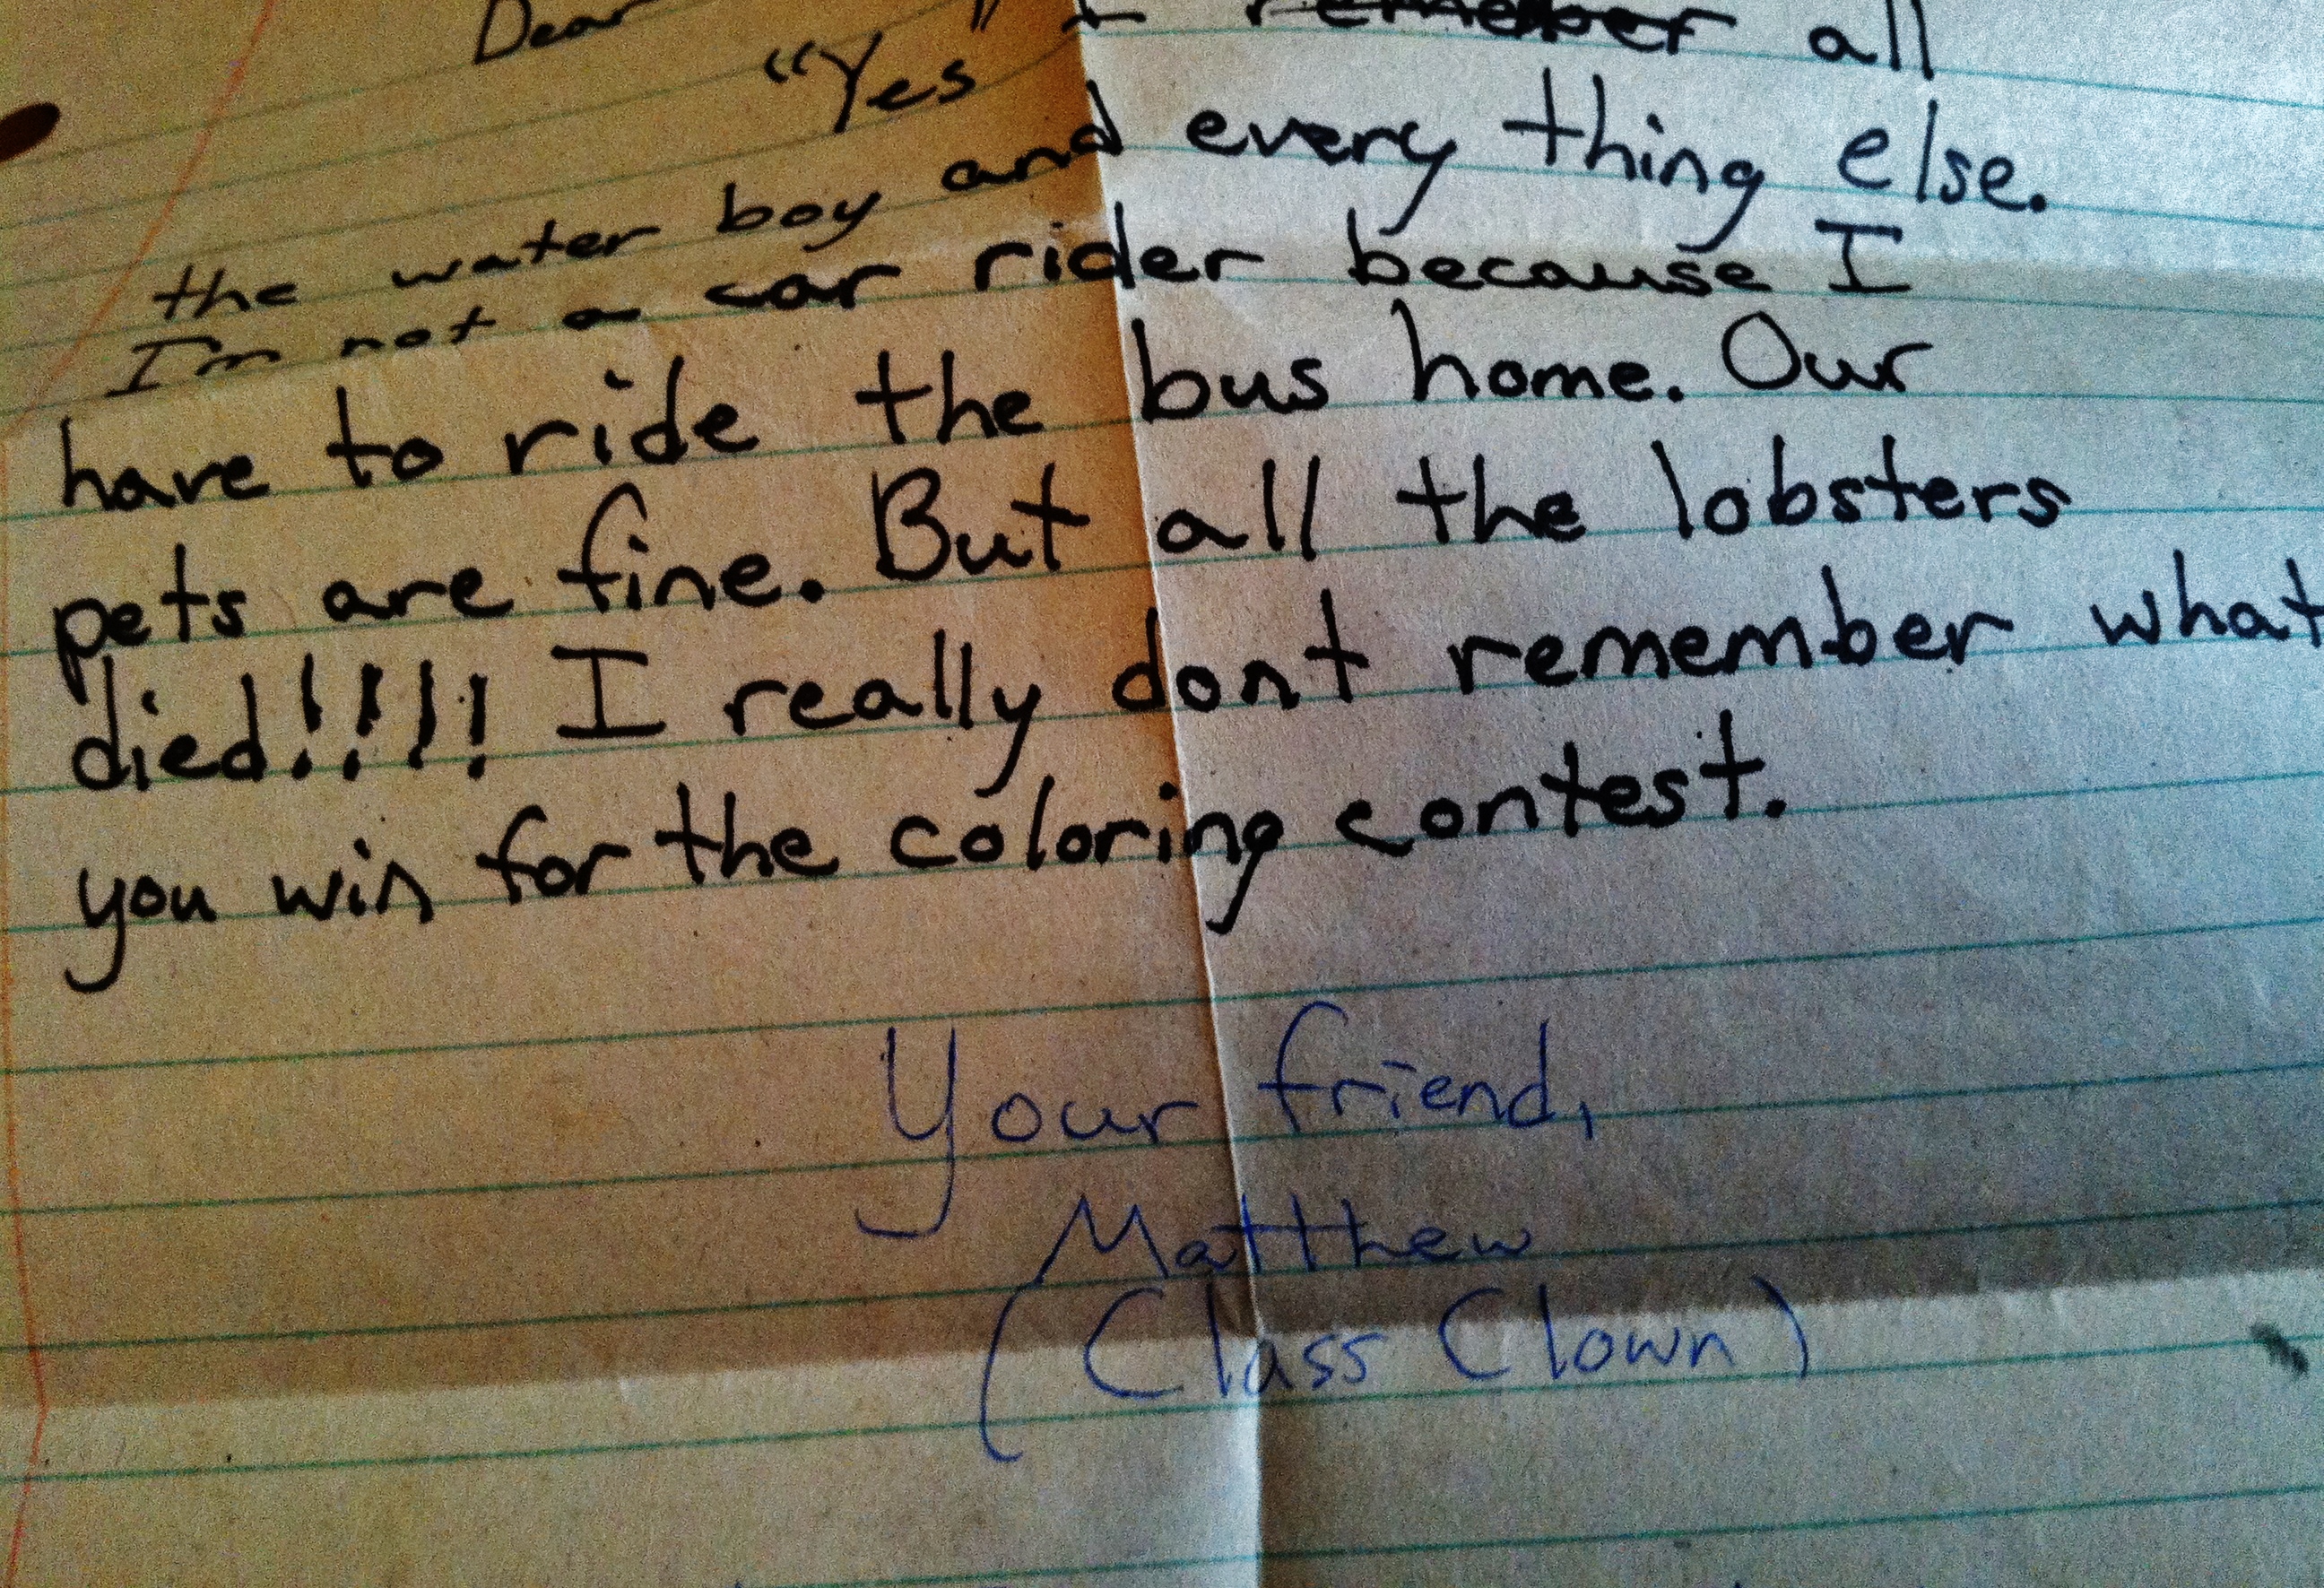 Dear
"Yes" I remember all
the water boy and every thing else.
I'm not a car rider because I
have to ride the bus home. Our
pets are fine. But all the lobsters
died!!!! I really dont remember what
you win for the coloring contest.
Your friend,
Matthew
(Class Clown)